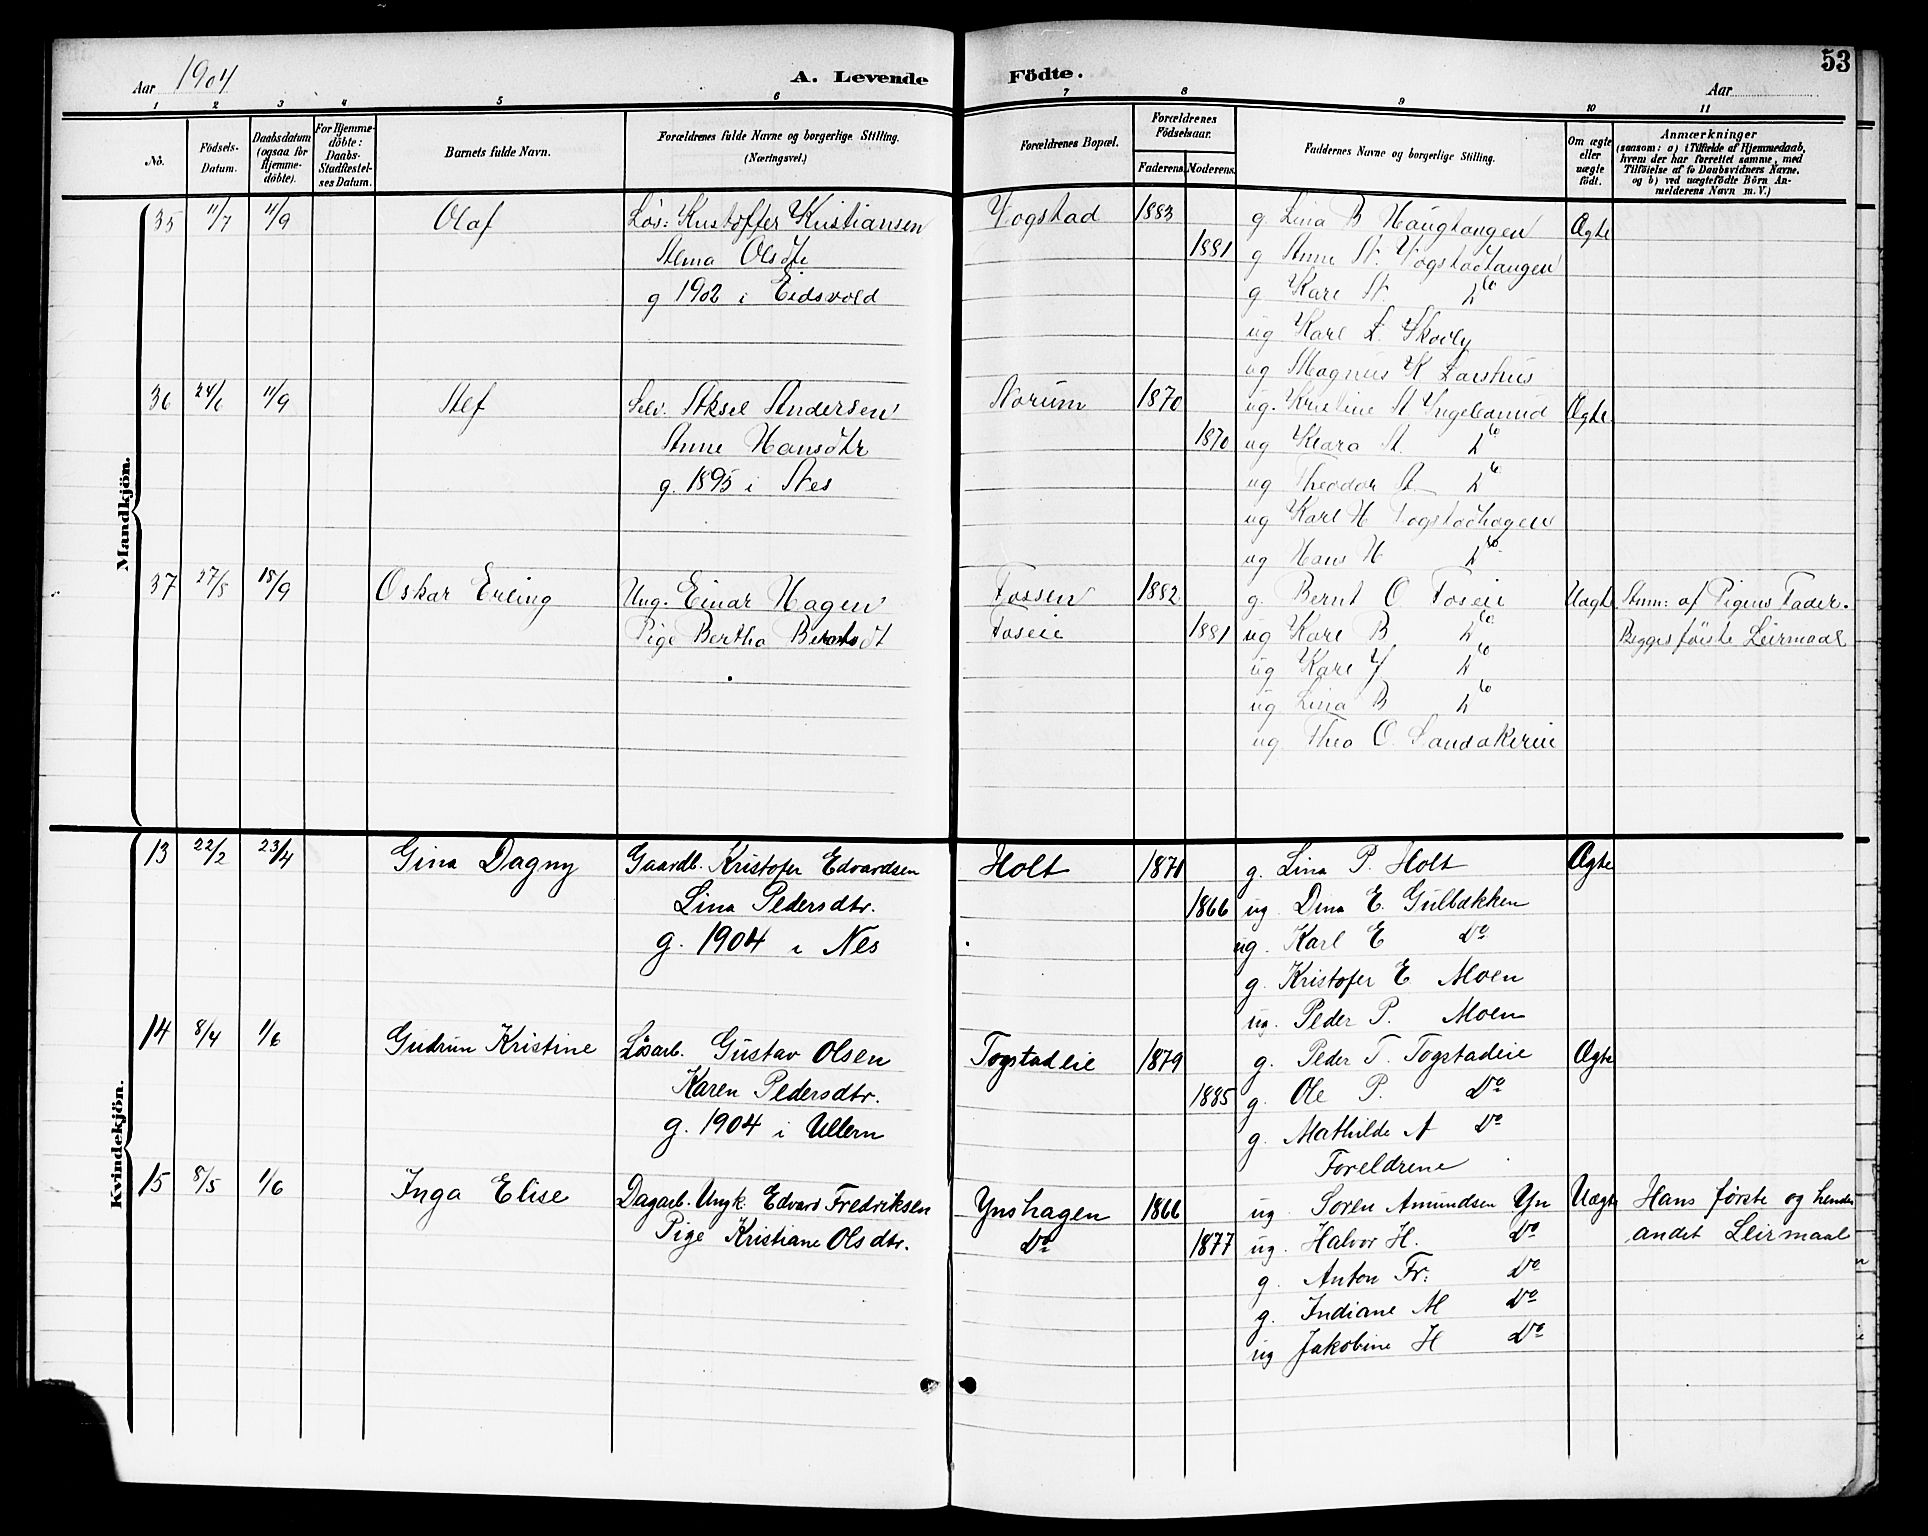 53
Aar 1904
A. Levende Födte.
Aar
1 2 3 4 5 6 7 8 9 10 11
No.
Födsels-Datum.
Daabsdatum (ogsaa for Hjemme-döbte).
For Hjemme-döbte: Daabs-Stadfæstel-ses Datum.
Barnets fulde Navn.
Forældrenes fulde Navne og borgerlige Stilling.
(Næringsvei.)
Forældrenes Bopæl.
Forældrenes Födselsaar.
Faderens Moderens
Faddernes Navne og borgerlige Stilling.
Om ægte eller uægte födt.
Anmærkninger
(saasom: a) i Tilfælde af Hjemmedaab,
hvem der har forrettet samme, med
Tilföielse af to Daabsvidners Navne.
og b) ved uægtefödte Börn An-
melderens Navn m. V.)
Mandkjön.
35 11/7 11/9 Olaf Lös: Kristoffer Kristiansen Vogstad 1883 g Lina B Haugtangen Ægte
Alma Olsdtr 1881 g Anne A. Vogstadtangen
g 1902 i Eidsvold g. Karl A. Do
ug Karl L. Skoely
ug Magnus K Larshus
36 24/6 11/9 Alf Selv. Aksel Andersen Norum 1870 ug. Kristine A Ingelsrud Ægte
Anne Hansdtr 1870 ug Klara A. Do
g. 1895 i Nes ug Theodor A. Do
ug Karl H Togstadhagen
ug Hans H Do
37 27/8 18/9 Oskar Erling Ung. Einar Hagen Fossen 1882 g. Bernt O Foseie Uægte Anm: af Pigens Fader.
Pige Bertha Berntsdt Foseie 1881 ug Karl B Do Begges förste Leirmaal
ug Karl J Do
ug Lina B Do
ug Thea O. Sandakereie
Kvindekjön.
13 22/2 23/4 Gina Dagny Gaardb. Kristofer Edvardsen Holt 1870 g. Lina P. Holt Ægte
Lina Pedersdtr. 1866 ug Dina E. Gulbækken
g. 1904 i Nes ug. Karl E Do
g. Kristofer E Moen
ug. Peder P. Moen
14 8/4 1/6 Gudrun Kristine Lösarb. Gustav Olsen Togstadeie 1879 g. Peder T. Togstadeie Ægte
Karen Pedersdtr. 1885 g. Ole P. Do
g. 1904 i Ullern g. Mathilde A Do
Foreldrene
15 8/5 1/6 Inga Elise Dagarb. Ungk. Edvard Fredriksen Ynshagen 1866 ug. Soren Amundsen Yn Uægte Hans förste og hendes
Pige Kristiane Olsdtr. Do 1877 ug. Halvor H. Do andet Leirmaal
g. Anton Fr: Do
g. Indiane M Do
ug Jakobine H Do